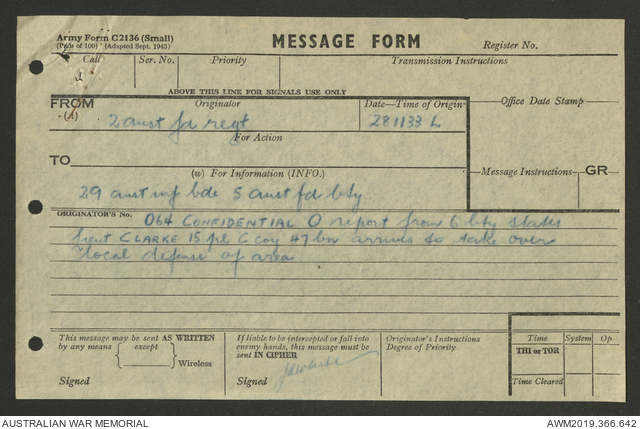 Army Form C2136 (Small)
(Pads of 100) (Adapted Sept. 1943)
MESSAGE FORM
Register No.
Call
Ser. No.
Priority
Transmission Instructions
ABOVE THIS LINE FOR SIGNALS USE ONLY
FROM
(A)
Originator
Date—Time of Origin
Office Date Stamp
2 aust fd regt
281133 L
For Action
TO
(w) For Information (INFO.)
Message Instructions
GR
29 aust inf bde 5 aust fd bty
ORIGINATOR'S No.
064 CONFIDENTIAL O report from 6 bty states
CLARKE 15 pl C coy 47 bn arrives to take over
local defense of area
This message may be sent AS WRITTEN
by any means
except
Wireless
Signed
If liable to be intercepted or fall into
enemy hands, this message must be
sent IN CIPHER
Signed
Originator's Instructions
Degree of Priority
Time
System
Op.
THI or TOR
Time Cleared
AUSTRALIAN WAR MEMORIAL
AWM2019.366.642